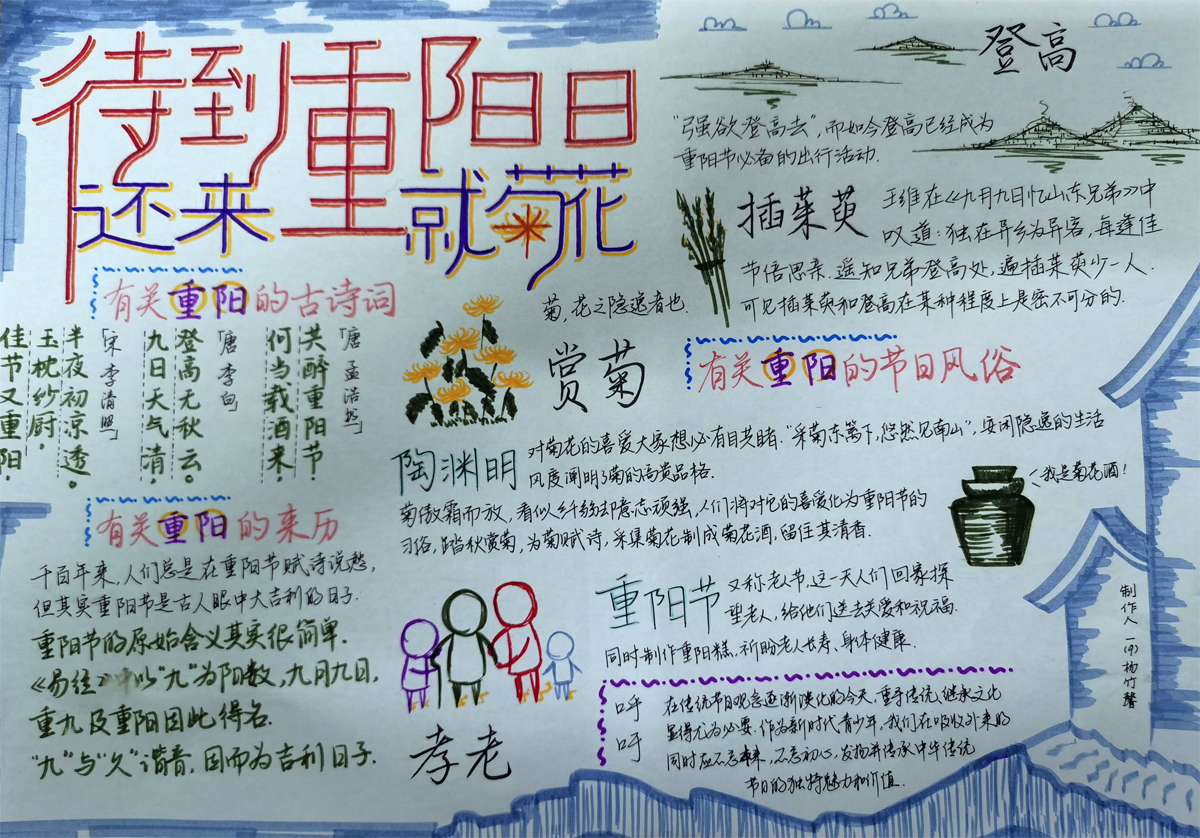 待到重阳日
还来就菊花
登高
"强欲登高去",而如今登高已经成为
重阳节必备的出行活动.
插茱萸
王维在《九月九日忆山东兄弟》中
叹道:独在异乡为异客,每逢佳
节倍思亲.遥知兄弟登高处,遍插茱萸少一人.
可见插茱萸和登高在某种程度上是密不可分的.
有关重阳的古诗词
「唐 孟浩然」
共醉重阳节
何当载酒来
「唐 李白」
登高无秋云。
九日天气清,
「宋 李清照」
半夜初凉透。
玉枕纱厨,
佳节又重阳
菊,花之隐逸者也.
赏菊
有关重阳的节日风俗
陶渊明
对菊花的喜爱大家想必有目共睹."采菊东篱下,悠然见南山",安闲隐逸的生活
风度阐明了菊的高贵品格.
菊傲霜而放,看似纤弱却意志顽强,人们将对它的喜爱化为重阳节的
习俗,踏秋赏菊,为菊赋诗,采集菊花制成菊花酒,留住其清香.
我是菊花酒!
有关重阳的来历
千百年来,人们总是在重阳节赋诗说愁,
但其实重阳节是古人眼中大吉利的日子.
重阳节的原始含义其实很简单.
《易经》中以"九"为阳数,九月九日,
重九及重阳因此得名.
"九"与"久"谐音,因而为吉利日子.
孝老
重阳节
又称老节,这一天人们回家探
望老人,给他们送去关爱和祝福.
同时制作重阳糕,祈盼老人长寿、身体健康.
呼
吁
在传统节日观念逐渐淡化的今天,重守传统、继承文化
显得尤为必要.作为新时代青少年,我们在吸收外来的
同时应不忘本来,不忘初心,发扬并传承中华传统
节日的独特魅力和价值.
制作人 一(9) 杨竹馨